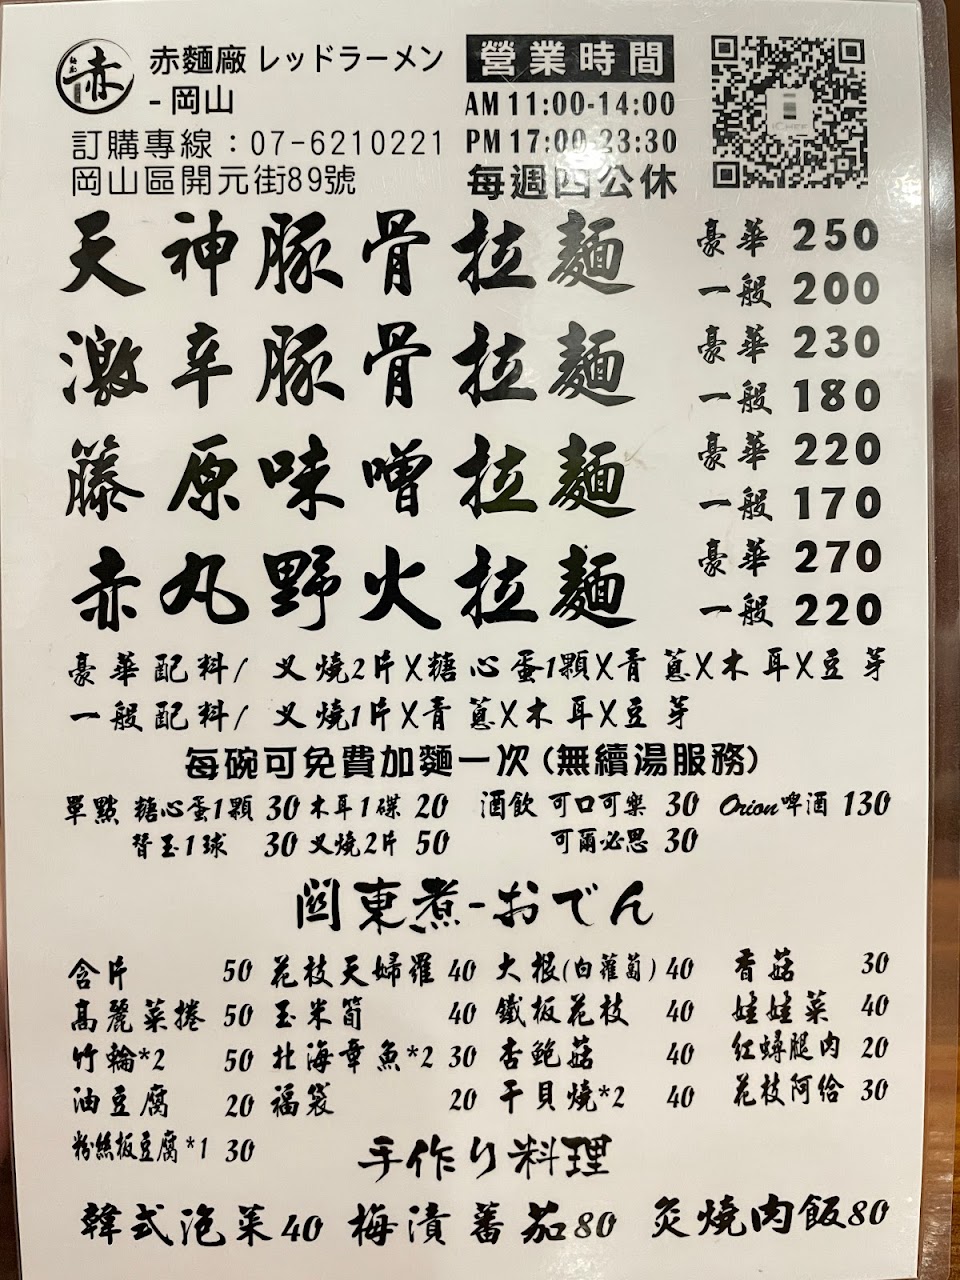 赤麵廠 レッドラーメン
-岡山
訂購專線：07-6210221
岡山區開元街89號
營業時間
AM 11:00-14:00
PM 17:00-23:30
每週四公休
天神豚骨拉麵 豪華 250
一般 200
激辛豚骨拉麵 豪華 230
一般 180
籐原味噌拉麵 豪華 220
一般 170
赤丸野火拉麵 豪華 270
一般 220
豪華配料/ 叉燒2片X糖心蛋1顆X青蔥X木耳X豆芽
一般配料/ 叉燒1片X青蔥X木耳X豆芽
每碗可免費加麵一次(無續湯服務)
單點 糖心蛋1顆 30 木耳1碟 20 酒飲 可口可樂 30 Orion啤酒 130
替玉1球 30 叉燒2片 50 可爾必思 30
關東煮-おでん
含片 50 花枝天婦羅 40 大根(白蘿蔔) 40 香菇 30
高麗菜捲 50 玉米筍 40 鐵板花枝 40 娃娃菜 40
竹輪*2 50 北海章魚*2 30 杏鮑菇 40 紅蟳腿肉 20
油豆腐 20 福袋 20 干貝燒*2 40 花枝阿給 30
粉絲板豆腐*1 30
手作り料理
韓式泡菜40 梅漬蕃茄80 炙燒肉飯80